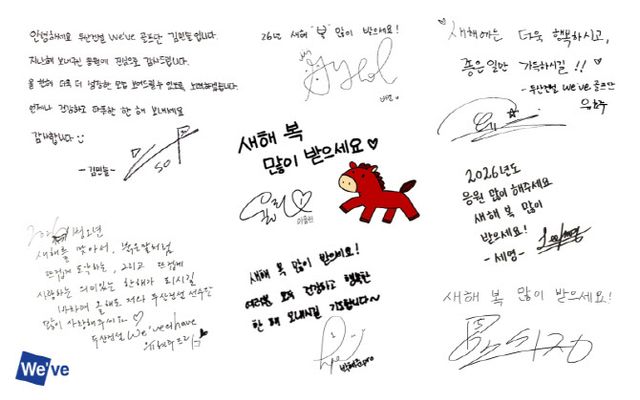 안녕하세요 두산건설 We've 골프단 김민솔입니다
지난해 보내주신 응원에 진심으로 감사드립니다.
올 한해 더욱 더 성장한 모습 보여드릴 수 있도록 노력하겠습니다
언제나 건강하고 따뜻한 한 해 보내세요
감사합니다
-김민솔-
26년 새해 "복" 많이 받으세요!
새해에는 더욱 행복하시고,
좋은 일만 가득하시길!!
-두산건설 We've 골프단
유현주
새해 복
많이 받으세요
이율린
2026년도
응원 많이 해주세요
새해 복 많이
받으세요!
-세영-
2026
새해를 맞아서, 붉은말처럼
뜨겁게 도약하는, 그리고 뜨겁게
사랑하는 의미있는 한해가 되시길
바라며 올해도 저와 두산건설 선수단
많이 사랑해주세요
두산건설 We've
새해 복 많이 받으세요!
여러분 모두 건강하고 행복한
한 해 보내시길 기도합니다~
박혜준pro
새해 복 많이 받으세요!
We've